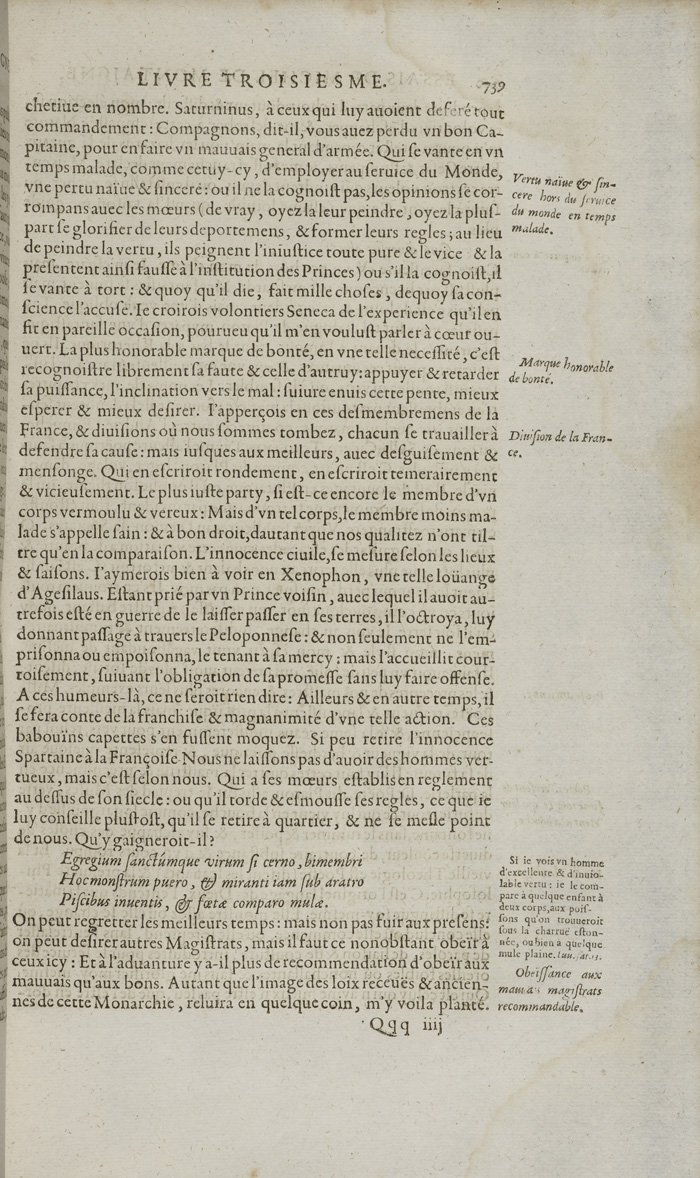 LIVRE TROISIESME. 739
chetiue en nombre. Saturninus, à ceux qui luy auoient deferé tout
commandement : Compagnons, dit-il, vous auez perdu vn bon Ca-
pitaine, pour en faire vn mauuais general d'armée. Qui se vante en vn
temps malade, comme cetuy-cy, d'employer au seruice du Monde,
vne pertu naïue & sincere : ou il ne la cognoist pas, les opinions se cor-
rompans auec les mœurs (de vray, oyez la leur peindre, oyez la plus-
part se glorifier de leurs deportemens, & former leurs regles ; au lieu
de peindre la vertu, ils peignent l'iniustice toute pure & le vice & la
presentent ainsi fausse à l'institution des Princes) ou s'il la cognoist, il
se vante à tort : & quoy qu'il die, fait mille choses, dequoy sa con-
science l'accuse. Ie croirois volontiers Seneca de l'experience qu'il en
fit en pareille occasion, pourueu qu'il m'en voulust parler à cœur ou-
uert. La plus honorable marque de bonté, en vne telle necessité, c'est
recognoistre librement sa faute & celle d'autruy : appuyer & retarder
sa puissance, l'inclination vers le mal : suiure enuis cette pente, mieux
esperer & mieux desirer. I'apperçois en ces desmembremens de la
France, & diuisions où nous sommes tombez, chacun se trauailler à
defendre sa cause : mais iusques aux meilleurs, auec desguisement &
mensonge. Qui en escriroit rondement, en escriroit temerairement
& vicieusement. Le plus iuste party, si est-ce encore le membre d'vn
corps vermoulu & vereux : Mais d'vn tel corps, le membre moins ma-
lade s'appelle sain : & à bon droit, dautant que nos qualitez n'ont til-
tre qu'en la comparaison. L'innocence ciuile, se mesure selon les lieux
& saisons. I'aymerois bien à voir en Xenophon, vne telle loüange
d'Agesilaus. Estant prié par vn Prince voisin, auec lequel il auoit au-
trefois esté en guerre de le laisser passer en ses terres, il l'octroya, luy
donnant passage à trauers le Peloponnese : & non seulement ne l'em-
prisonna ou empoisonna, le tenant à sa mercy ; mais l'accueillit cour-
toisement, suiuant l'obligation de sa promesse sans luy faire offense.
A ces humeurs-là, ce ne seroit rien dire : Ailleurs & en autre temps, il
se fera conte de la franchise & magnanimité d'vne telle action. Ces
babouïns capettes s'en fussent moquez. Si peu retire l'innocence
Spartaine à la Françoise. Nous ne laissons pas d'auoir des hommes ver-
tueux, mais c'est selon nous. Qui a ses mœurs establis en reglement
au dessus de son siecle : ou qu'il torde & esmousse ses regles, ce que ie
luy conseille plustost, qu'il se retire à quartier, & ne se mesle point
de nous. Qu'y gaigneroit-il ?
Egregium sanctúmque virum si cerno, bimembri
Hoc monstrum puero, & miranti iam sub aratro
Piscibus inuentis, & fœtæ comparo mulæ.
On peut regretter les meilleurs temps : mais non pas fuir aux presens :
on peut desirer autres Magistrats, mais il faut ce nonobstant obeïr à
ceux icy : Et à l'aduanture y a-il plus de recommendation d'obeïr aux
mauuais qu'aux bons. Autant que l'image des loix receuës & ancien-
nes de cette Monarchie, reluira en quelque coin, m'y voila planté.
Qqq iiij
Vertu naïue & sin-
cere hors du seruice
du monde en temps
malade.
Marque honorable
de bonté.
Diuision de la Fran-
ce.
Si ie vois vn homme
d'excellente & d'inuio-
lable vertu : ie le com-
pare à quelque enfant à
deux corps, aux pois-
sons qu'on trouueroit
sous la charruë eston-
née, ou bien à quelque
mule plaine.
Obeissance aux
mauuais magistrats
recommandable.